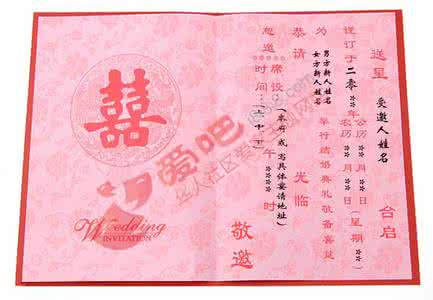 送呈 受邀人姓名 台启
谨订于二零☆☆年
公历☆月☆日(星期☆☆)
农历☆☆月☆☆日
为
男方新人姓名
女方新人姓名
举行结婚典礼敬备喜筵
恭请 光临
恕邀
席设:(本府或写具体宴请地址)
时间:(上中下)午☆☆☆☆时
敬邀
囍
Wedding
INVITATION
爱吧